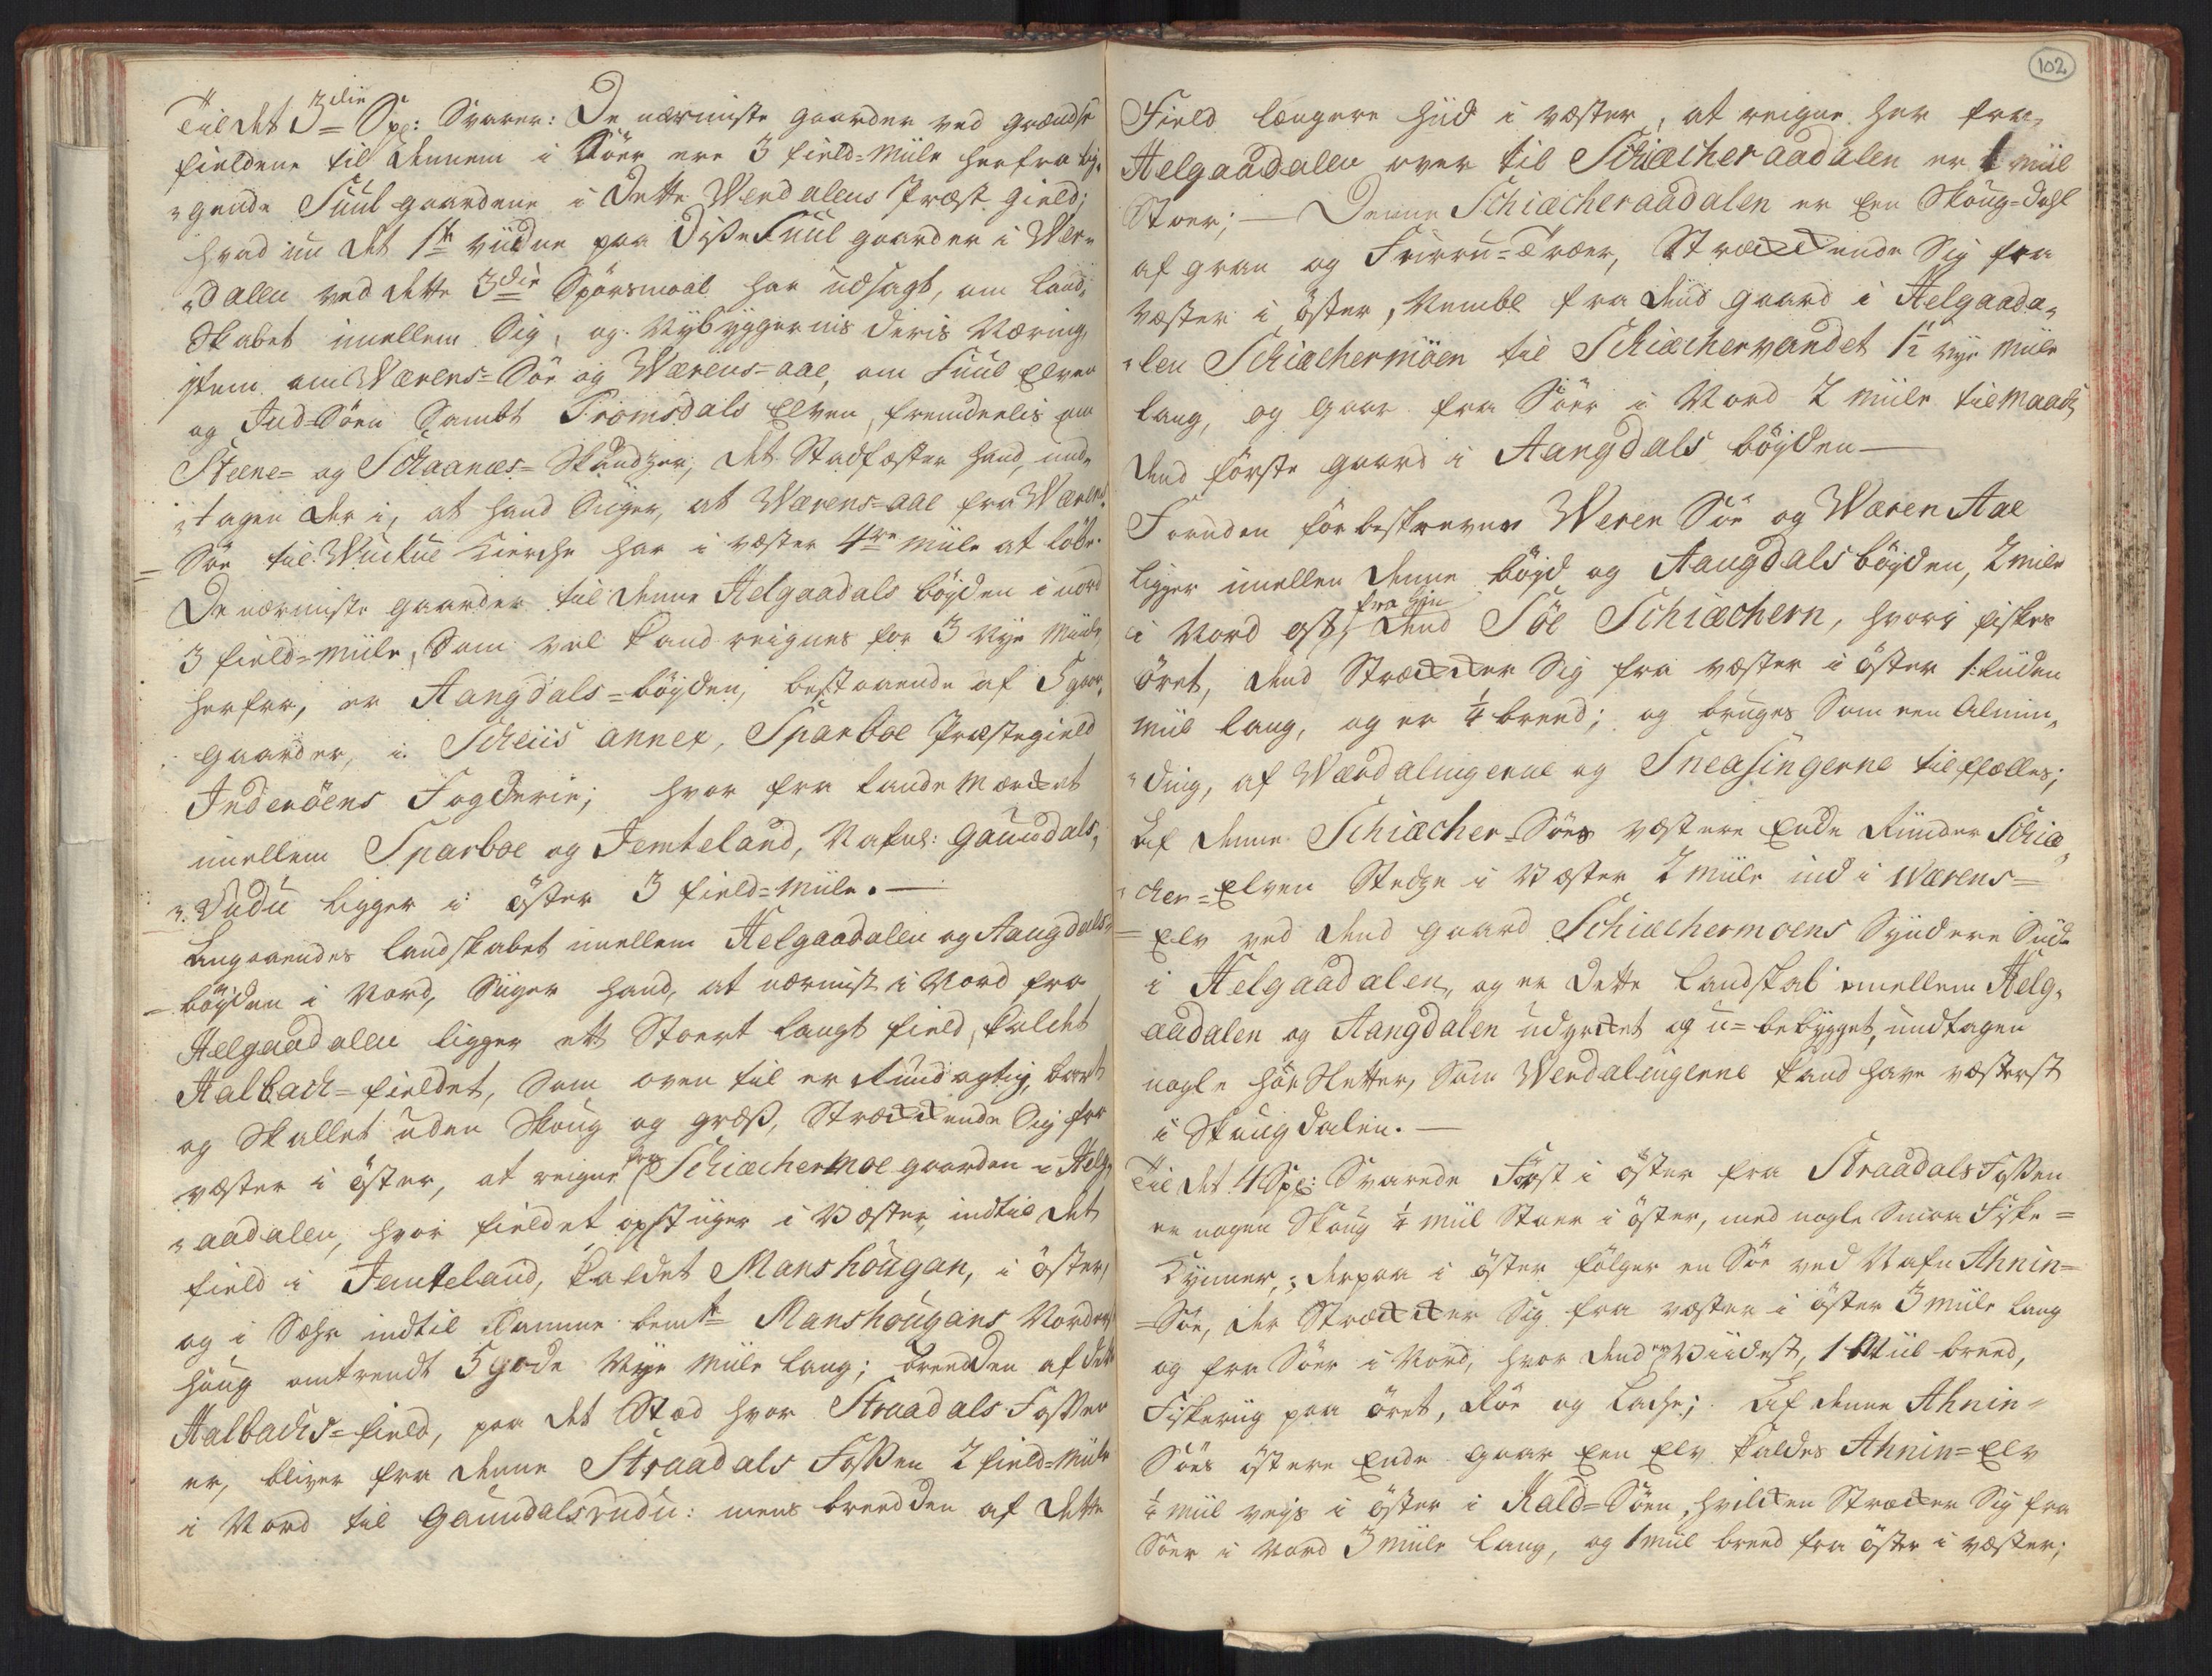 Til det 3die Sp: Svarer: De nærmiste gaarder ved grændse
fieldene til dennem i Söer ere 3 field-Miile herfra lig-
gende Suul gaardene i dette Werdalens Præst. gield;
hvad nu det 1te vidne paa disse Suul gaarder i Wer-
dalen ved dette 3die Spörsmaal har udsagt, om Land-
skabet imellem Sig, og Nybyggernis deris Næring
item om Wærens-Söe og Wærens-aae, om Suul Elven
og Ind-Söen Sambt Tromsdals Elven, fremdeelis om
Steene- og Schaanæs-Skandzer, det Stadfæster hand, und-
tagen der i, at hand Siiger, at Wærens-aae fra Wærens
Söe til Wuckue Kierche har i væster 4re Miile at löbe.
De nærmiste gaarder til denne Helgaadals böyden i nord
3 field-Miile, Som vel kand reignes for 3 Nye Miile,
herfra, er Aangdals-böyden, bestaaende af 5 gaar-
gaarder, i Scheiis annex, Sparboe Præstegield
Inderöens Fogderie; hvor fra Landemærcket
imellem Sparboe og Jemteland, Nafnl: Gaundals,
Rudu ligger i öster 3 field-Miile.
Angaaendes Landskabet imellem Helgaadalen og Aangdals-
böyden i Nord, Siiger hand, at nærmist i Nord fra
Helgaadalen ligger ett Stoert langt field, kaldet
Halback-fieldet, Som oven til er Rundagtig, bart
og Skallet uden Skoug og græs, Strækkende Sig fra
væster i öster, at reigne fra Schiæchermoe gaarden i Helg-
aadalen, hvor fieldet opstiiger i Væster, indtil det
field i Jemteland, kaldet Manshougan, i öster,
og i Söhr indtil Samme bemte Manshougans Norder
houg omtrendt 5 gode Nye Miile lang; breedden af dette
Halbachs-field, paa det Stæd hvor Straadals Fossen
er, bliver fra denne Straadals Fossen 2 field-Miile
i Nord til Gaundalsrudu: mens breedden af dette
102
Field længere hiid i væster, at reigne her fra
Helgaadalen over til Schiæcheraadalen er 1 Miil
Stoer; Denne Schiæcheraadalen er een Skoug-dahl
af gran og Furru-Træer, Strækkende Sig fra
væster i öster, Nembl fra dend gaard i Helgaada-
len Schiæchermöen til Schiæchervandet 1½ nye Miile
lang, og gaar fra Söer i Nord 2 Miile til Maach
dend förste gaard i Aangdals böyden
Foruden forbeskrevne Weren Söe og Wæren Aae
ligger imellem denne böyd og Aangdals böyden, 2 Mile
i Nord ost, fra Hiin dend Söe Schiæchern, hvori fiskes
öret, dend Strækker Sig fra væster i öster 1 liiden
Miil lang, og er ¼ breed; og bruges Som een Almin-
ding, af Wærdalingerne og Sneasingerne til fælles;
Af denne Schiæcher-Söes væstere Ende Rinder Schiæ-
cher-Elven Stedze i Væster 2 Miile ind i Wærens-
Elv ved dend gaard Schiæchermoens Syndere Siide
i Helgaadalen, og er dette Landskab imellem Helg-
aadalen og Aangdalen udyrcket og u-bebygget, undtagen
nogle höe Sletter, Som Werdalingerne kand have væsterst
i Skougdalen.
Til det 4 Sp: Svarede Först i öster fra Straadals Fossen
er nogen Skoug ½ Miil Stoer i öster, med nogle Smaa Fiske-
Kynner; derpaa i öster fölger en Söe ved Nafn Ahnin-
Söe, der Strækker Sig fra væster i öster 3 Miile lang
og fra Söer i Nord, hvor dend er Viidest, 1 Miil breed,
Fiskeriig paa öret, Röe og Lache; Af denne Ahnin-
Söes östere Ende gaar Een Elv kaldes Ahnin-Elv
¼ Miil veys i öster i Kald-Söen, hvilcken Strækker Sig fra
Söer i Nord 3 Miile lang, og 1 Miil breed fra öster i væster;